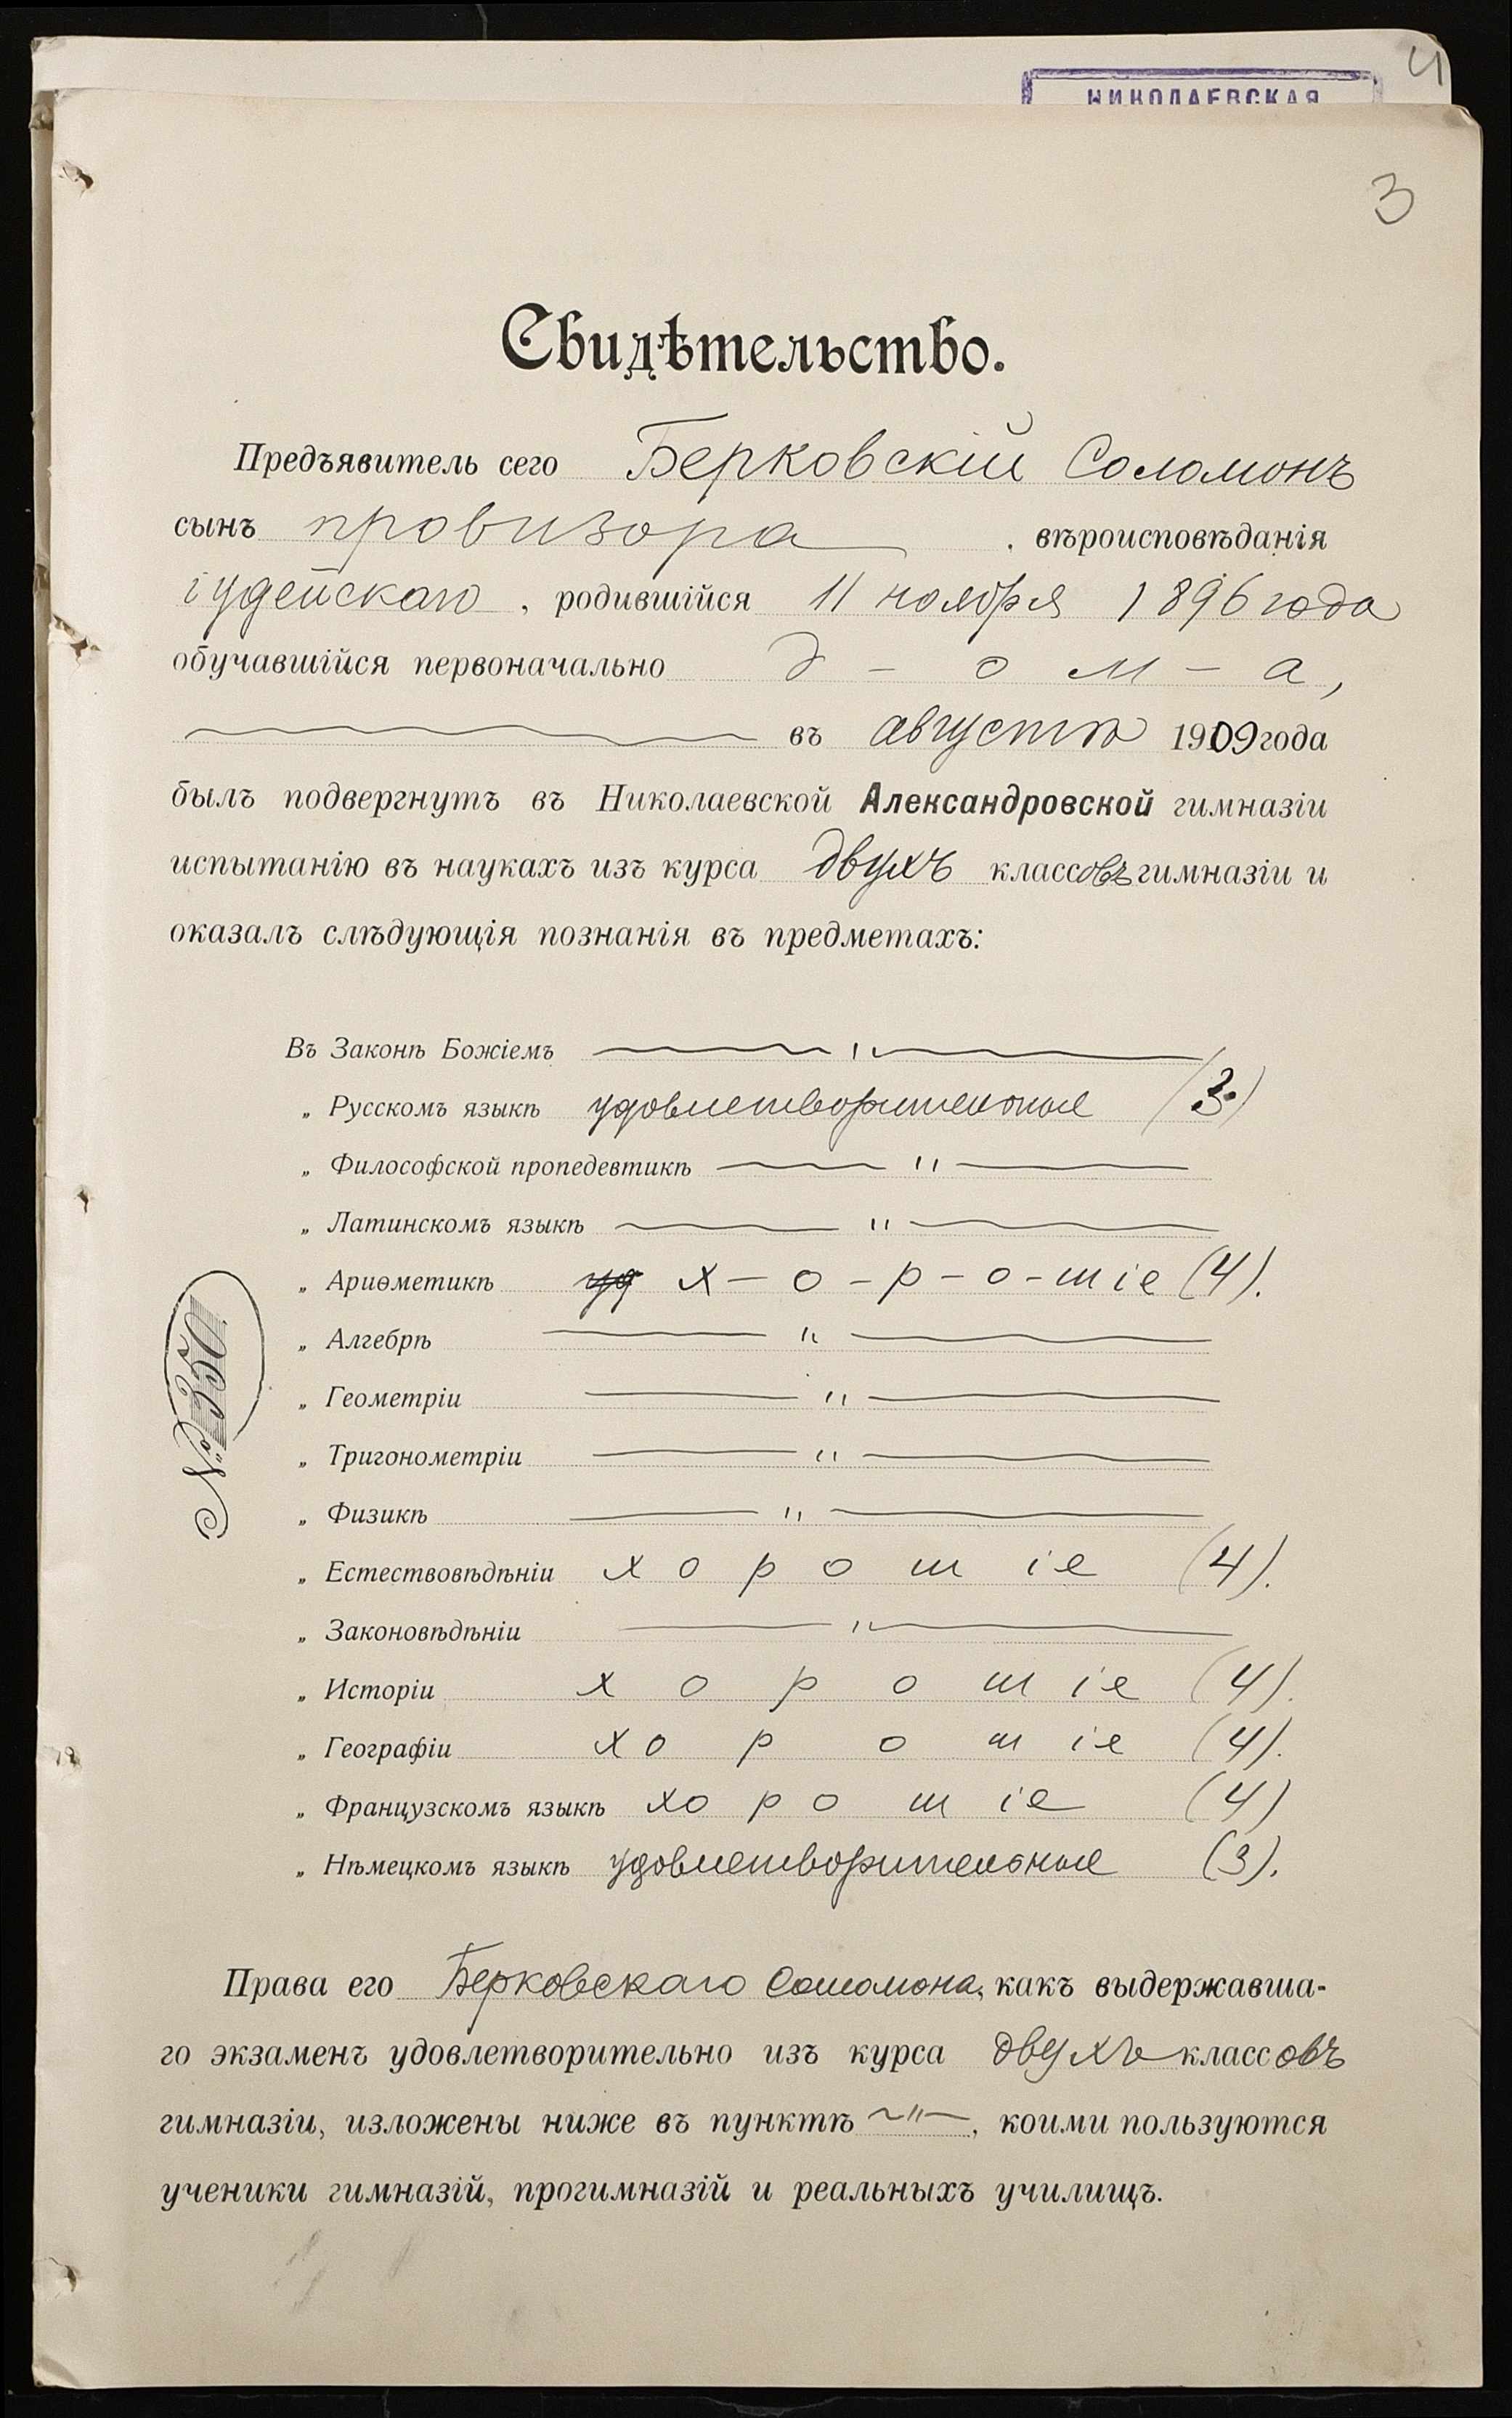 4
НИКОЛАЕВСКАЯ
3
Свидѣтельство.
Предъявитель сего Берковскій Соломонъ
сынъ провизора , вѣроисповѣданія
іудейскаго, родившійся 11 ноября 1896 года
обучавшійся первоначально д - о м - а,
въ августѣ 1909 года
былъ подвергнутъ въ Николаевской Александровской гимназіи
испытанію въ наукахъ изъ курса двухъ классовъ гимназіи и
оказалъ слѣдующія познанія въ предметахъ:
Въ Законѣ Божіемъ "
„ Русскомъ языкѣ удовлетворительныя (3.)
„ Философской пропедевтикѣ "
„ Латинскомъ языкѣ "
„ Ариѳметикѣ уд х - о - р - о - шіе (4).
„ Алгебрѣ "
„ Геометріи "
„ Тригонометріи "
„ Физикѣ "
„ Естествовѣдѣніи хорошіе (4).
„ Законовѣдѣніи "
„ Исторіи хорошіе (4).
„ Географіи хорошіе (4).
„ Французскомъ языкѣ хорошіе (4)
„ Нѣмецкомъ языкѣ удовлетворительныя (3).
№ 350
Права его Берковскаго Соломона, какъ выдержавша-
го экзаменъ удовлетворительно изъ курса двухъ классовъ
гимназіи, изложены ниже въ пунктѣ ~"—, коими пользуются
ученики гимназій, прогимназій и реальныхъ училищъ.